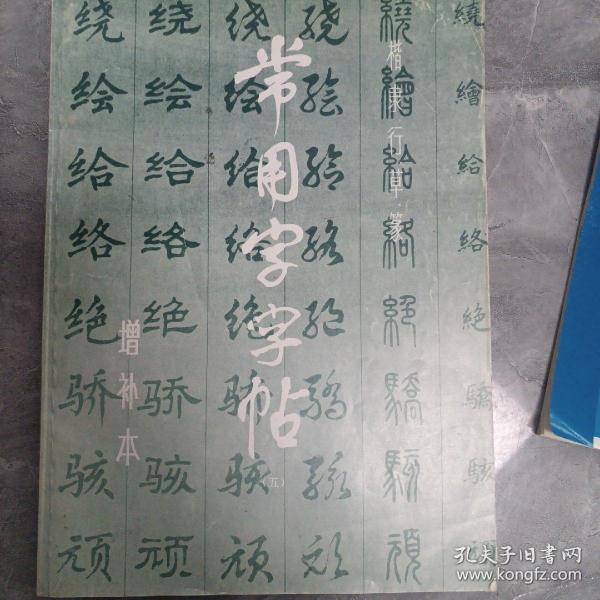 常用字字帖
(五)
楷隶行草篆
增补本
绕 绕 绕 绕 繞 繞
绘 绘 绘 绘 繪 繪
给 给 给 给 給 給
络 络 络 络 絡 絡
绝 绝 绝 绝 絕 絶
骄 骄 骄 骄 驕 驕
骇 骇 骇 骇 駭 駭
顽 顽 顽 顽 頑
孔夫子旧书网
www.kongfz.com